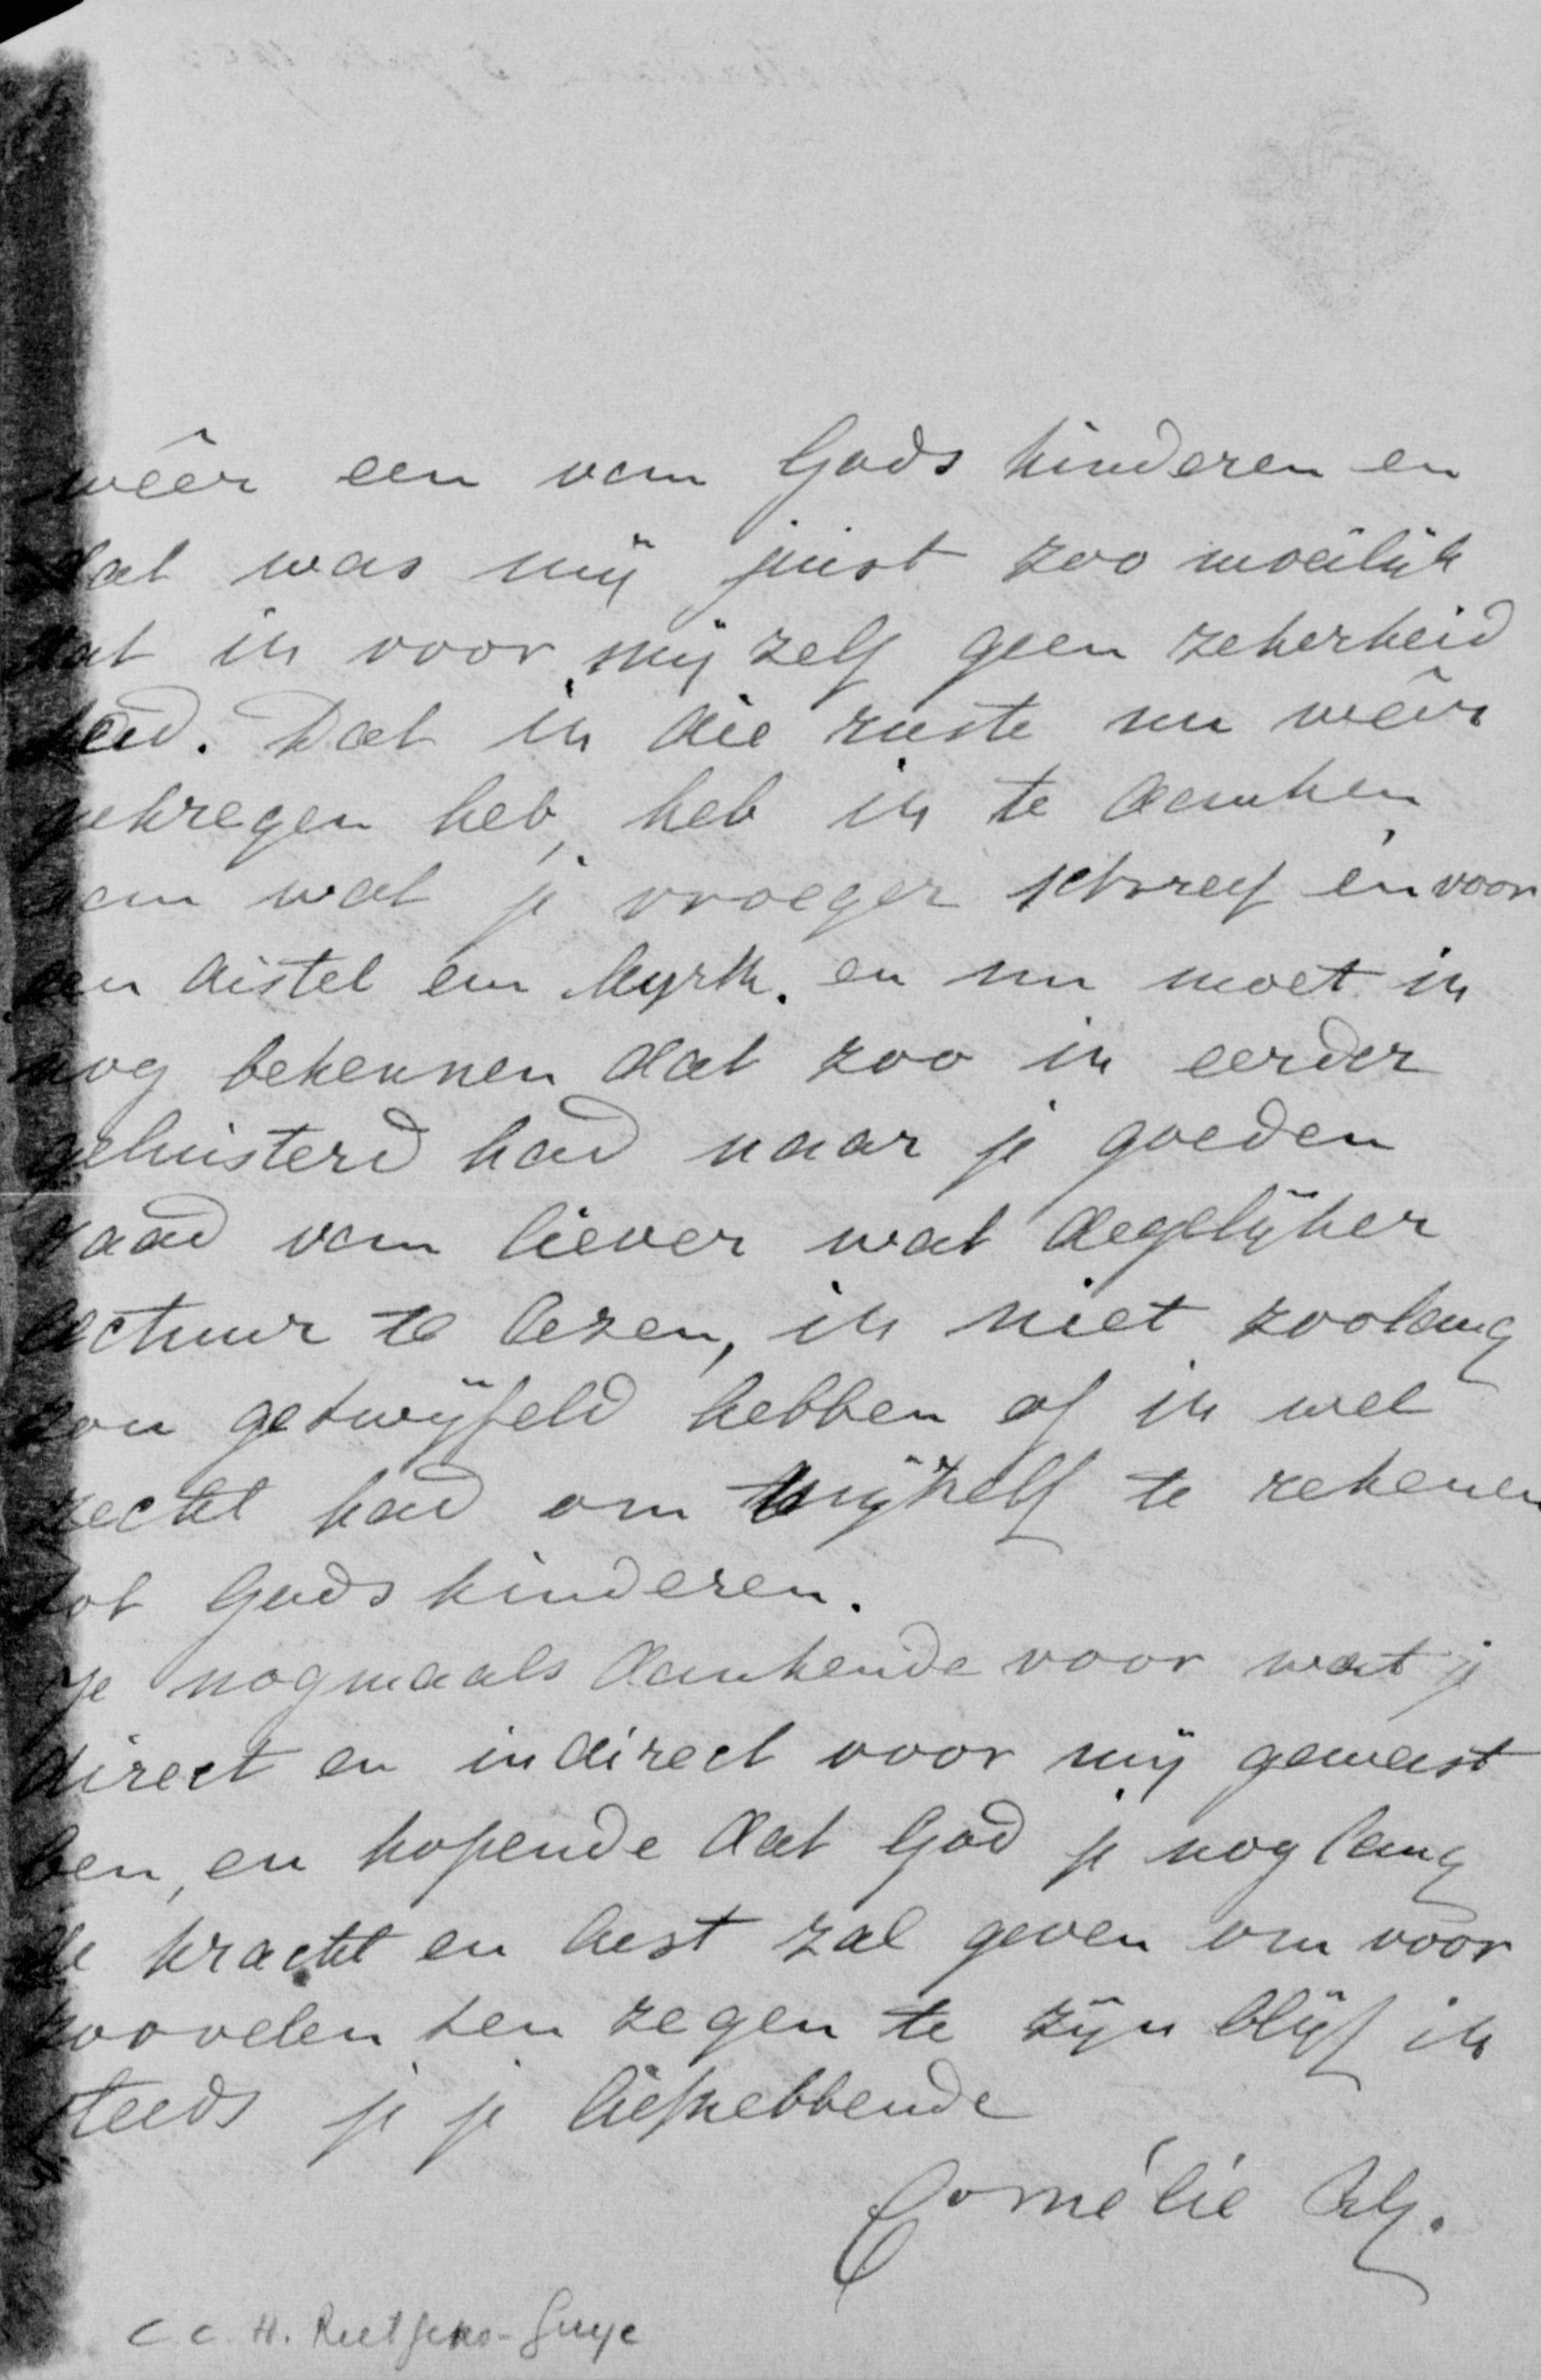 wêer een van Gods kinderen en
dat was mij juist zoo moeilijk
dat ik voor mij zelf geen zekerheid
had. Dat ik die ruste nu wêer
gekregen heb, heb ik te danken
aan wat je vroeger schreef én voor
een distel een Myrth. en nu moet ik
nog bekennen dat zoo ik eerder
geluisterd had naar je goeden
raad van liever wat degelijker
lectuur te lezen, ik niet zoolang
zou getwijfeld hebben of ik wel
recht had om mijzelf te rekenen
tot Gods kinderen.
Je nogmaals dankende voor wat je
direct en indirect voor mij geweest
ben, en hopende dat God je nog lang
de kracht en lust zal geven om voor
zoovelen ten zegen te zijn blijf ik
steeds je je liefhebbende
Cornélie
c c H. Rutgers-Guye